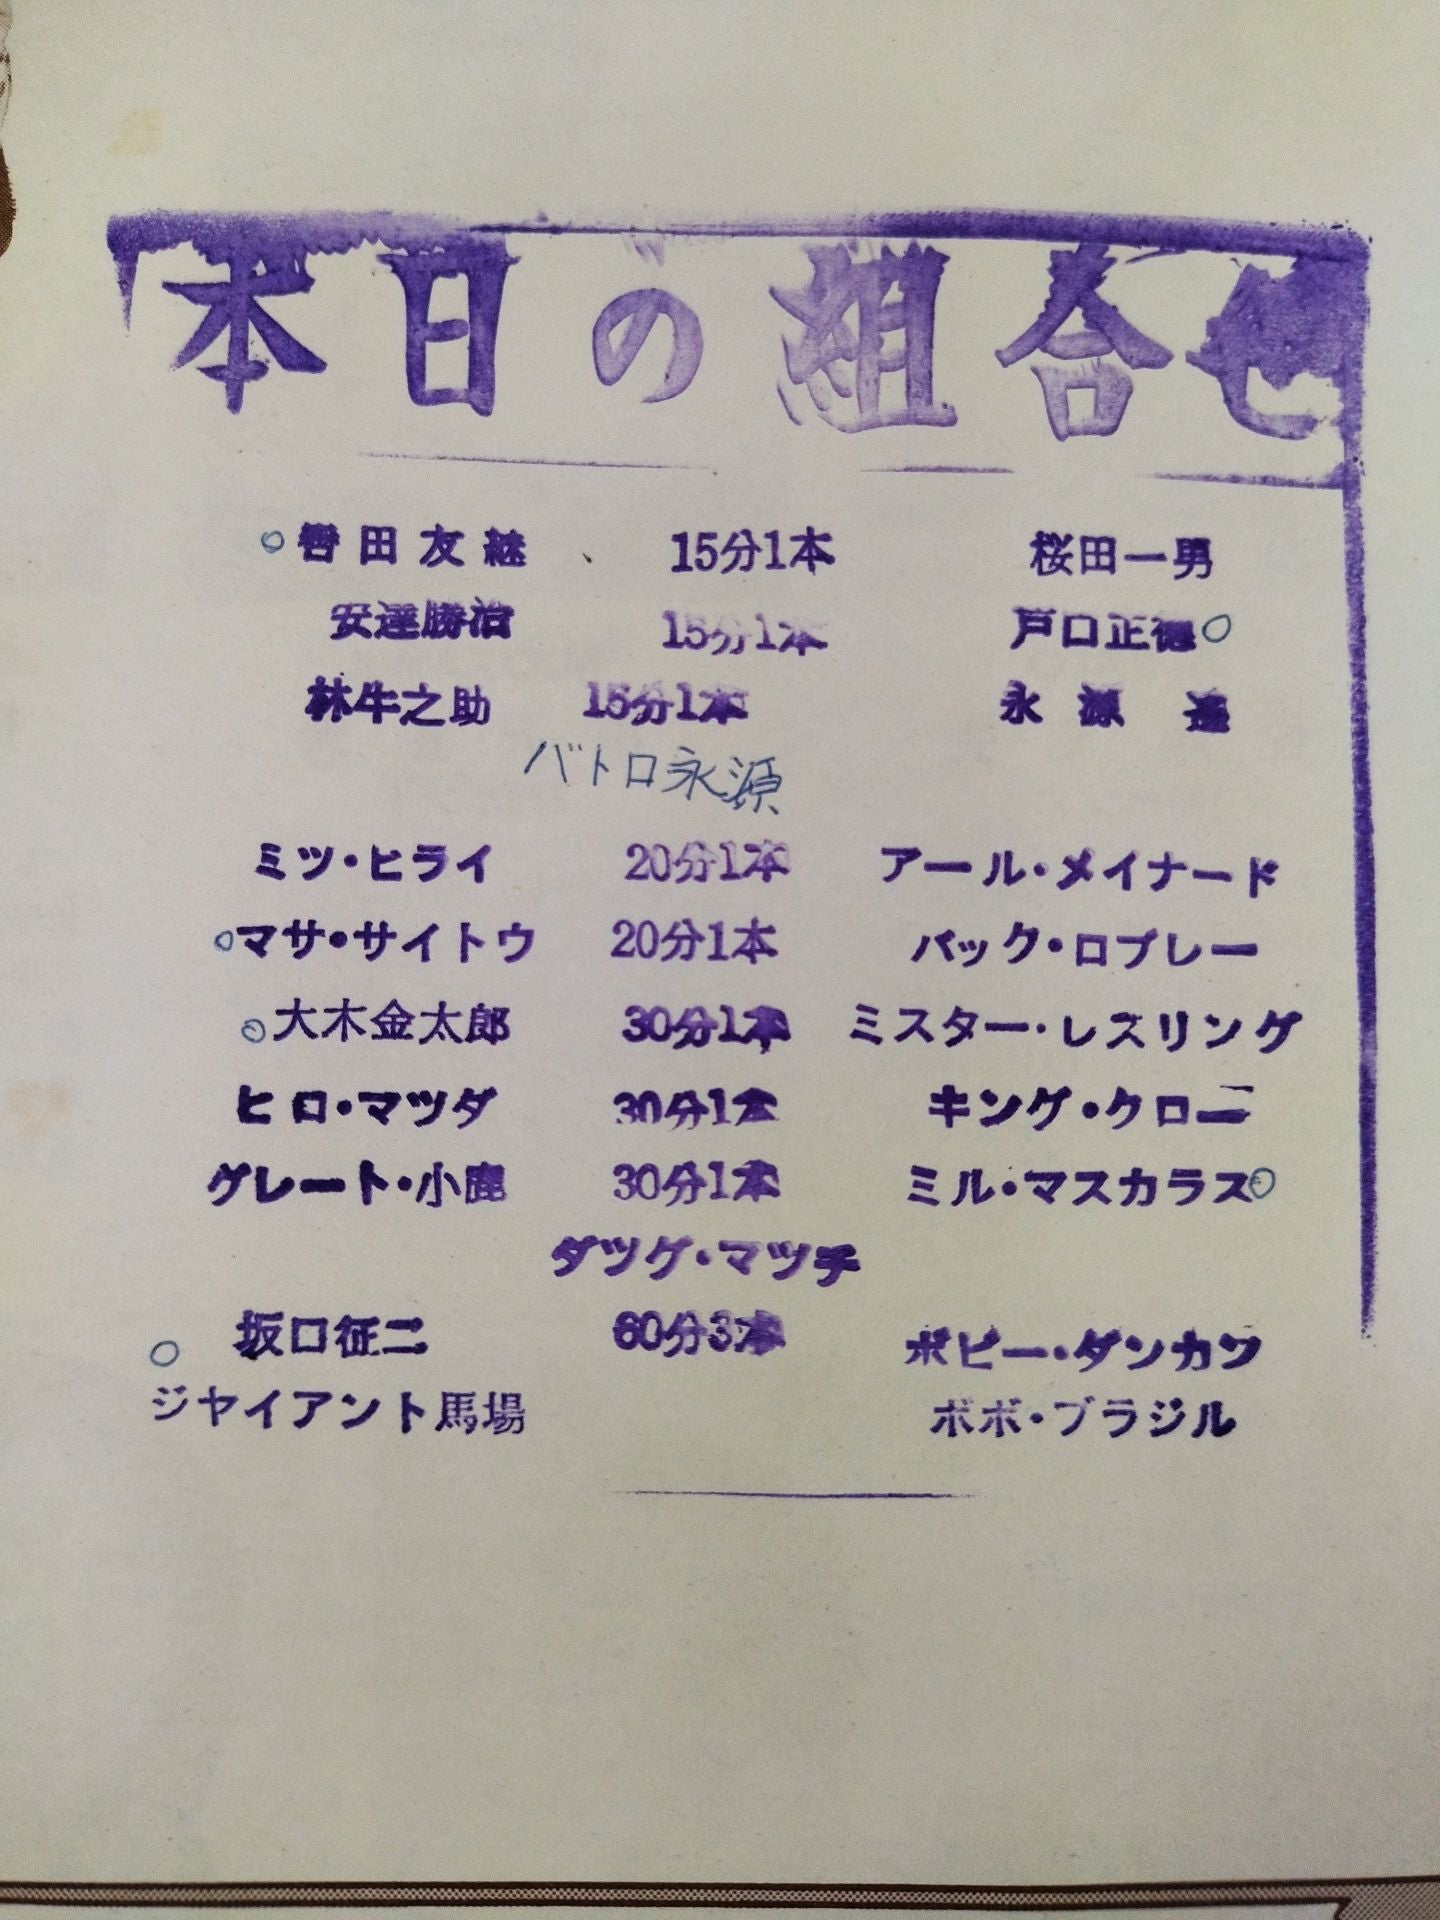 本日の組合せ
○轡田友継 15分1本 桜田一男
安達勝治 15分1本 戸口正徳○
林牛之助 15分1本 永源遙
バトロ永源
ミツ・ヒライ 20分1本 アール・メイナード
○マサ・サイトウ 20分1本 バック・ロブレー
○大木金太郎 30分1本 ミスター・レスリング
ヒロ・マツダ 30分1本 キング・クロー
グレート・小鹿 30分1本 ミル・マスカラス○
ダツグ・マツチ
坂口征二 60分3本 ボビー・ダンカン
○
ジヤイアント馬場 ボボ・ブラジル